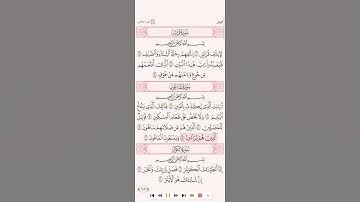 سُورَةُ قُرَيْشٍ
بِسْمِ ٱللَّهِ ٱلرَّحْمَٰنِ ٱلرَّحِيمِ
لِإِيلَٰفِ قُرَيْشٍ ١ إِۦلَٰفِهِمْ رِحْلَةَ ٱلشِّتَآءِ وَٱلصَّيْفِ ٢
فَلْيَعْبُدُوا۟ رَبَّ هَٰذَا ٱلْبَيْتِ ٣ ٱلَّذِىٓ أَطْعَمَهُم
مِّن جُوعٍ وَءَامَنَهُم مِّنْ خَوْفٍۭ ٤
سُورَةُ ٱلْمَاعُونِ
بِسْمِ ٱللَّهِ ٱلرَّحْمَٰنِ ٱلرَّحِيمِ
أَرَءَيْتَ ٱلَّذِى يُكَذِّبُ بِٱلدِّينِ ١ فَذَٰلِكَ ٱلَّذِى يَدُعُّ
ٱلْيَتِيمَ ٢ وَلَا يَحُضُّ عَلَىٰ طَعَامِ ٱلْمِسْكِينِ ٣ فَوَيْلٌ
لِّلْمُصَلِّينَ ٤ ٱلَّذِينَ هُمْ عَن صَلَاتِهِمْ سَاهُونَ ٥
ٱلَّذِينَ هُمْ يُرَآءُونَ ٦ وَيَمْنَعُونَ ٱلْمَاعُونَ ٧
سُورَةُ ٱلْكَوْثَرِ
بِسْمِ ٱللَّهِ ٱلرَّحْمَٰنِ ٱلرَّحِيمِ
إِنَّآ أَعْطَيْنَٰكَ ٱلْكَوْثَرَ ١ فَصَلِّ لِرَبِّكَ وَٱنْحَرْ ٢
إِنَّ شَانِئَكَ هُوَ ٱلْأَبْتَرُ ٣